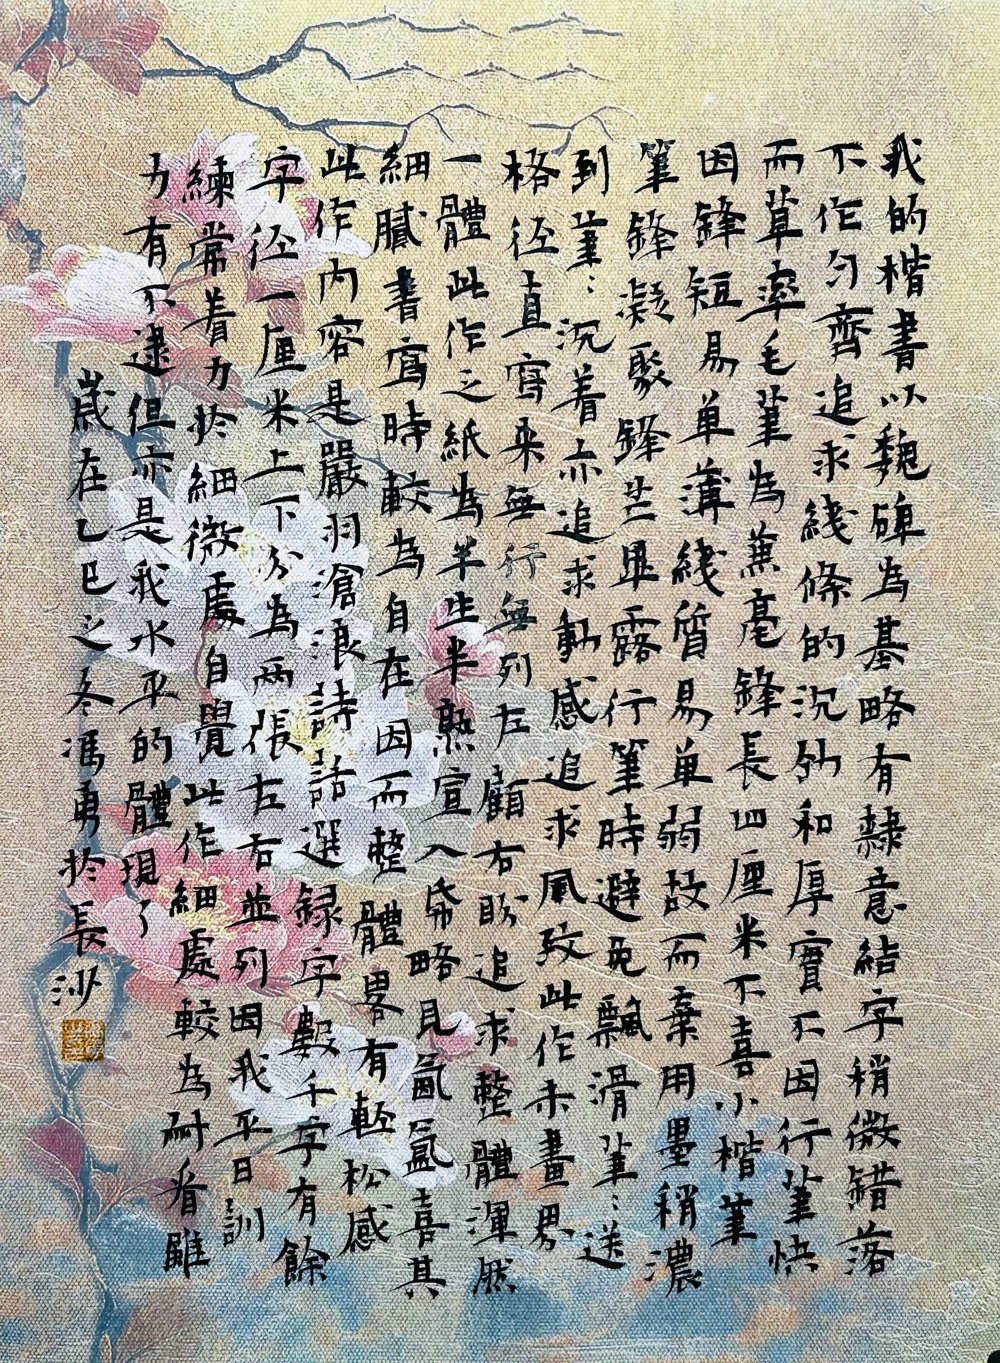 我的楷書以魏碑為基略有隸意結字稍微錯落
不作勻齊追求綫條的沉勁和厚實不因行筆快
而草率毛筆為蒹毫鋒長四厘米不喜小楷筆
因鋒短易单薄綫質易单弱故而棄用墨稍濃
筆鋒凝聚鋒芒显露行筆時避免飄滑筆：送
到筆：沉着亦追求動感追求風致此作未畫界
格径直寫来無行無列左顧右盼追求整體渾然
一體此作之紙為半生半熟宣入帋略見氤氳喜其
細膩書寫時較為自在因而整體畧有輕松感
此作内容是嚴羽滄浪詩話選録字數千字有餘
字径一厘米上下分為两張左右並列因我平日訓
練常着力於細微處自覺此作細處較為耐看雖
力有不逮但亦是我水平的體現了
歲在乙巳之冬馮勇於長沙